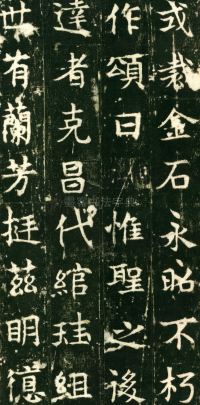 或裁金石永昭不朽
作頌曰惟聖之後
達者克昌代綰珪組
世有蘭芳挺茲明德